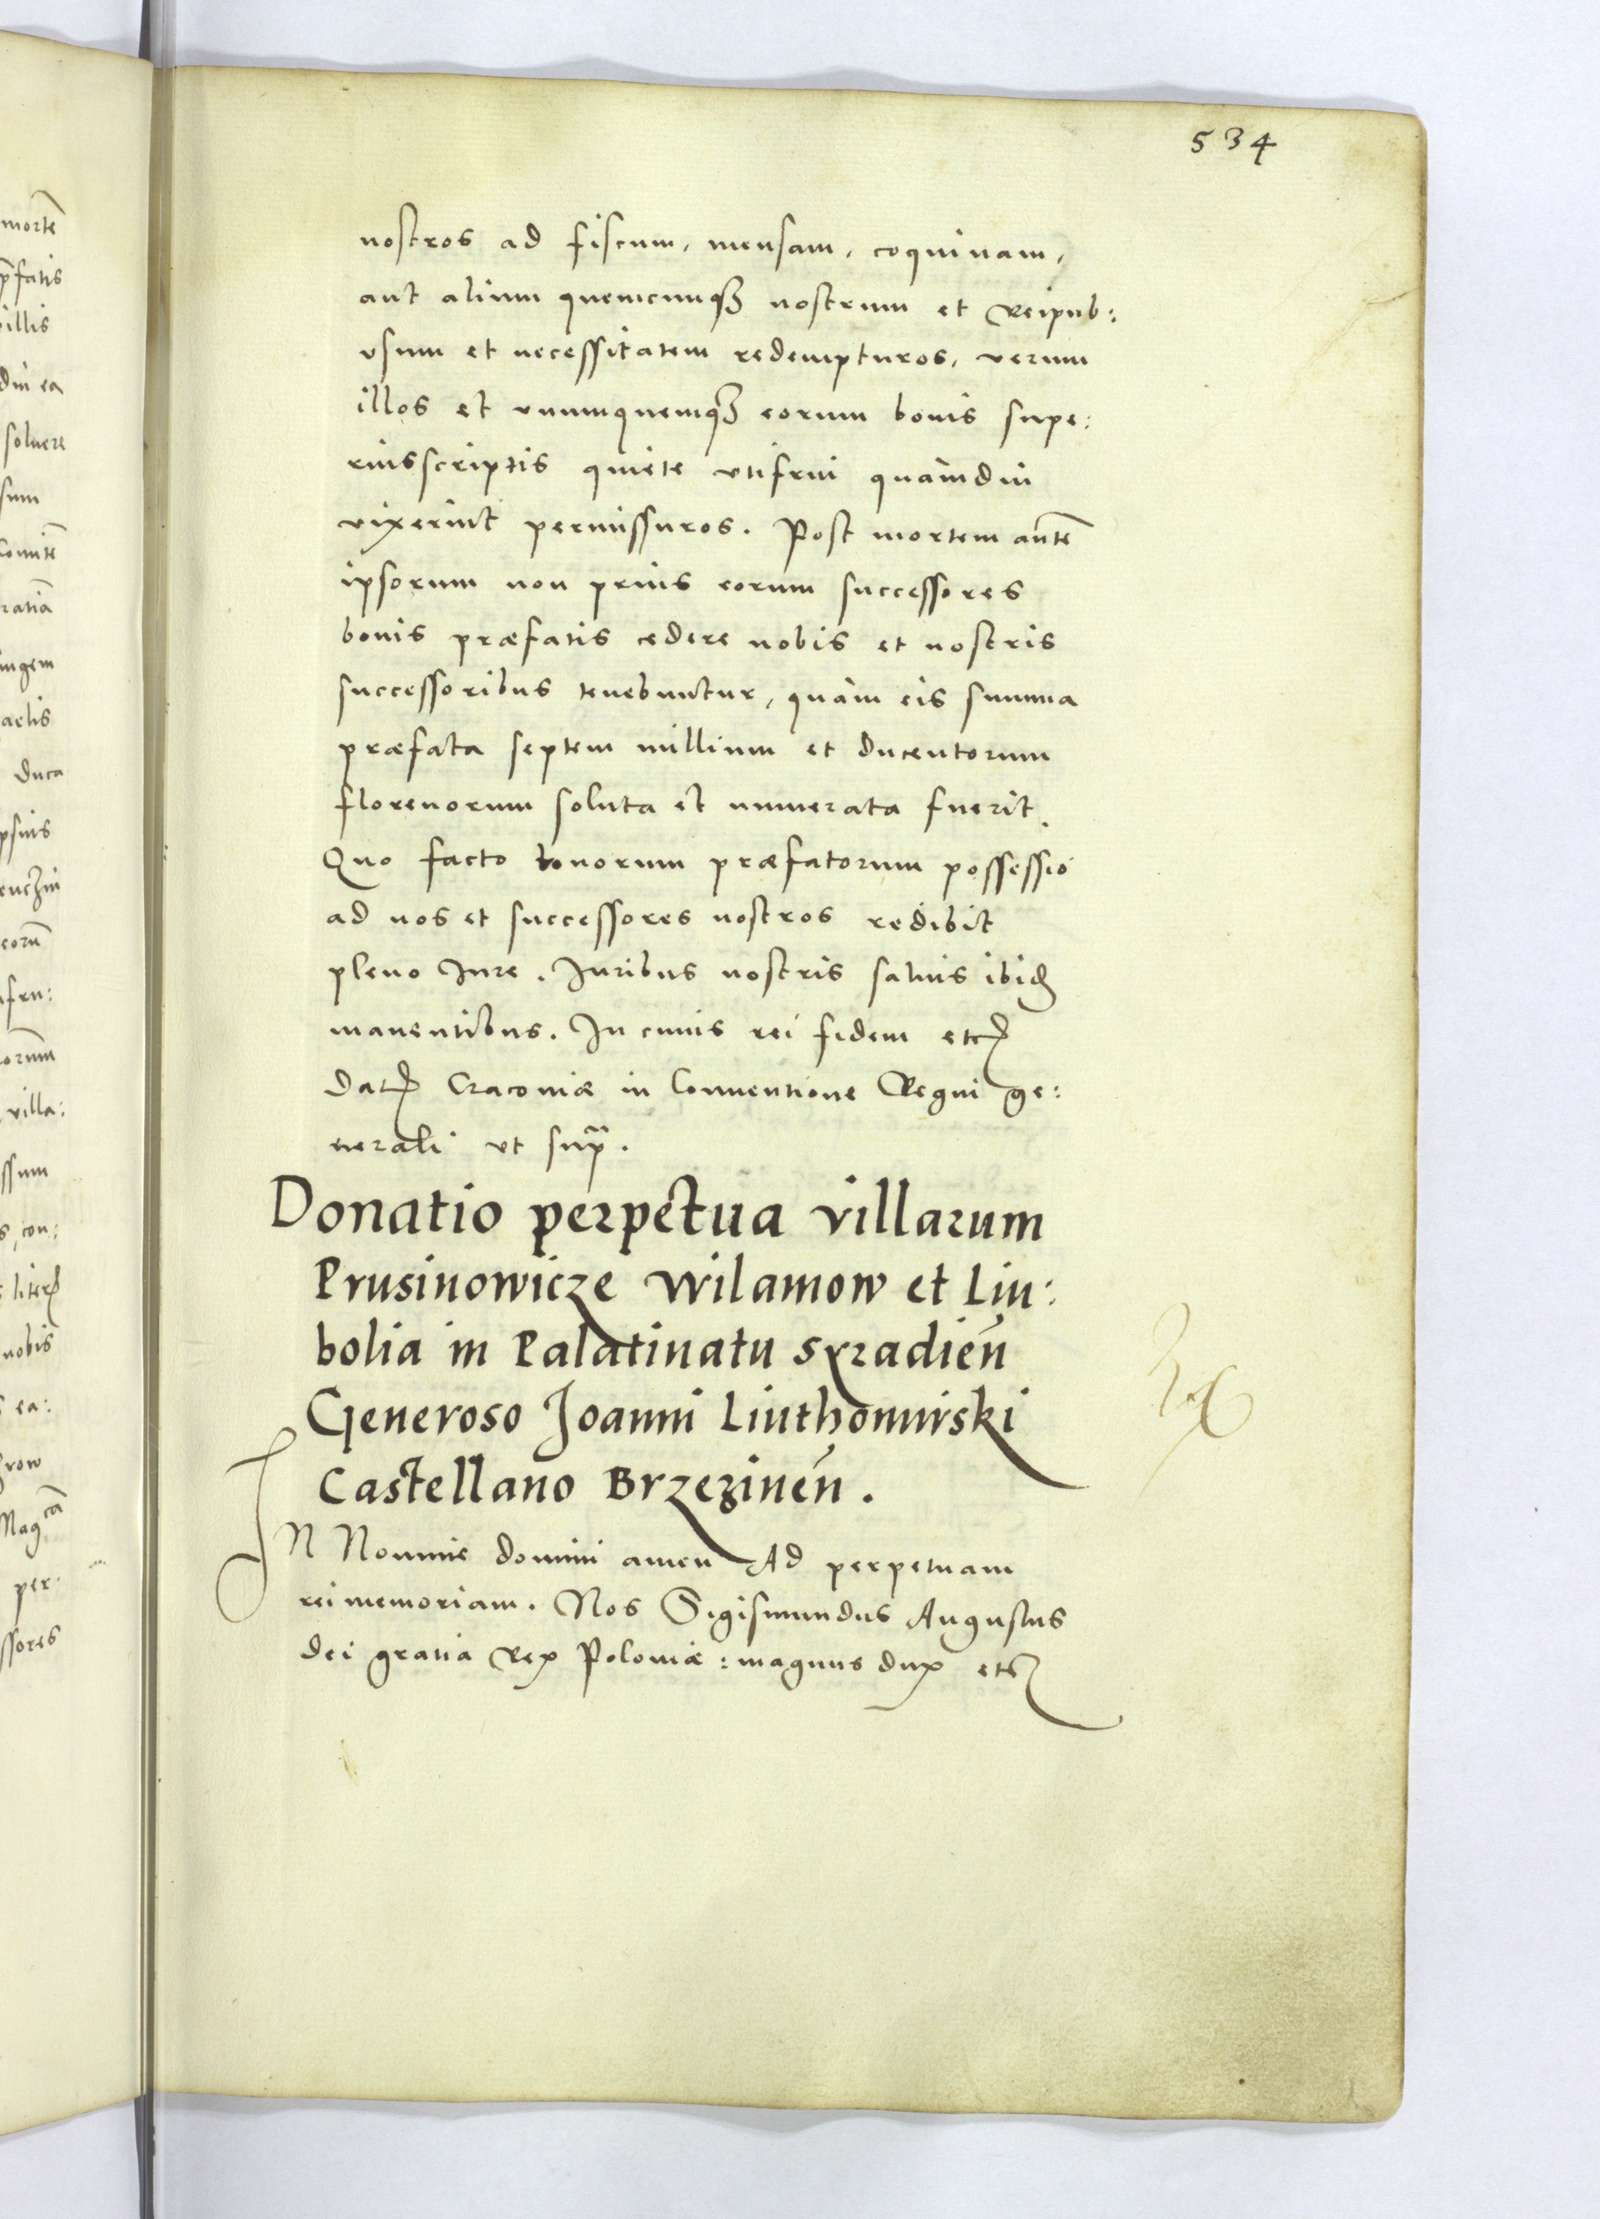 534
nostros ad fiscum, mensam, coquinam,
aut alium quemcunqȝ nostrum et Reipub:
vsum et necessitatem redempturos, verum
illos et vnumquemqȝ eorum bonis supe:
riusscriptis quiete vtifrui quàmdiu
vixerint permissuros. Post mortem autẽ
ipsorum non prius eorum successores
bonis præfatis cedere nobis et nostris
successoribus tenebuntur, quàm eis summa
præfata septem millium et ducentorum
florenorum soluta et numerata fuerit.
Quo facto bonorum præfatorum possessio
ad nos et successores nostros redibit
pleno Jure. Juribus nostris saluis ibid
manentibus. In cuius rei fidem etc
Dat Cracouiæ in Conuentione Regni ge:
nerali vt supᷓ.
Donatio perpetua villarum
Prusinowicze Wilamow et Liu:
bolia in Palatinatu Syradień
Generoso Joanni Liuthomirski
Castellano Brzezineń.
IN Nomine domini amen Ad perpetuam
rei memoriam. Nos Sigismundus Augustus
dei gratia Rex Poloniæ: magnus dux etc
mortẽ
p̃fatis
illis
diu ea
soluere
sum
Comitẽ
ratiã
ungem
aelis
Duca
psius
corũ
frn:
orum̃
villa:
ssum
s, con:
liter
nobis
ea:
row
per
ssores